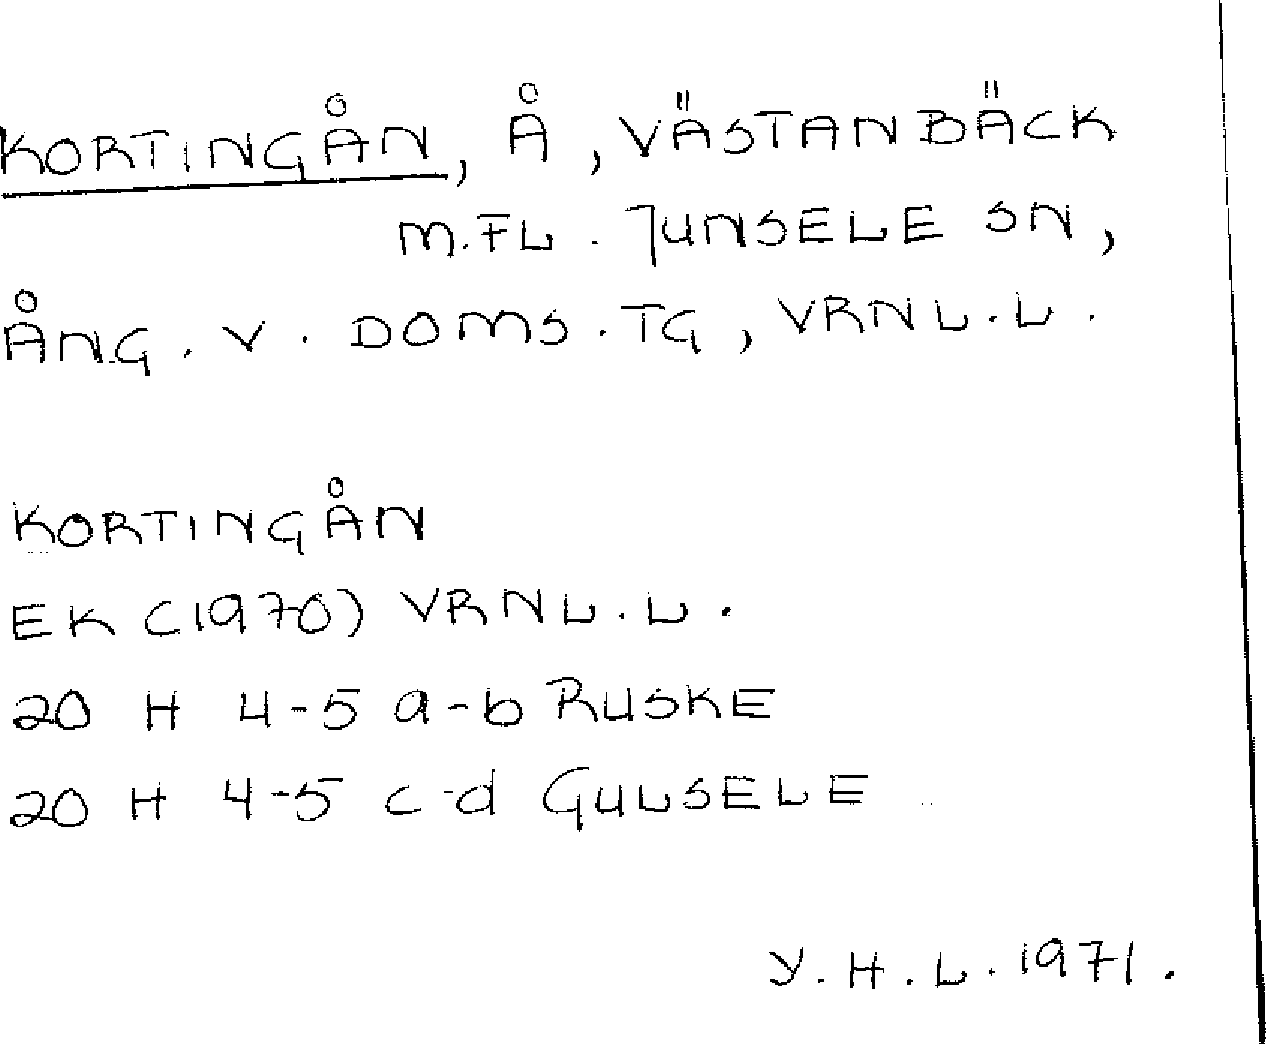 KORTINGÅN, Å, VÄSTANBÄCK
M.FL. JUNSELE SN,
ÅNG. V. DOMS.TG, VRNL.L.
KORTINGÅN
EK (1970) VRNL.L.
20 H 4-5 a-b RUSKE
20 H 4-5 c-d GULSELE
Y.H.L. 1971.